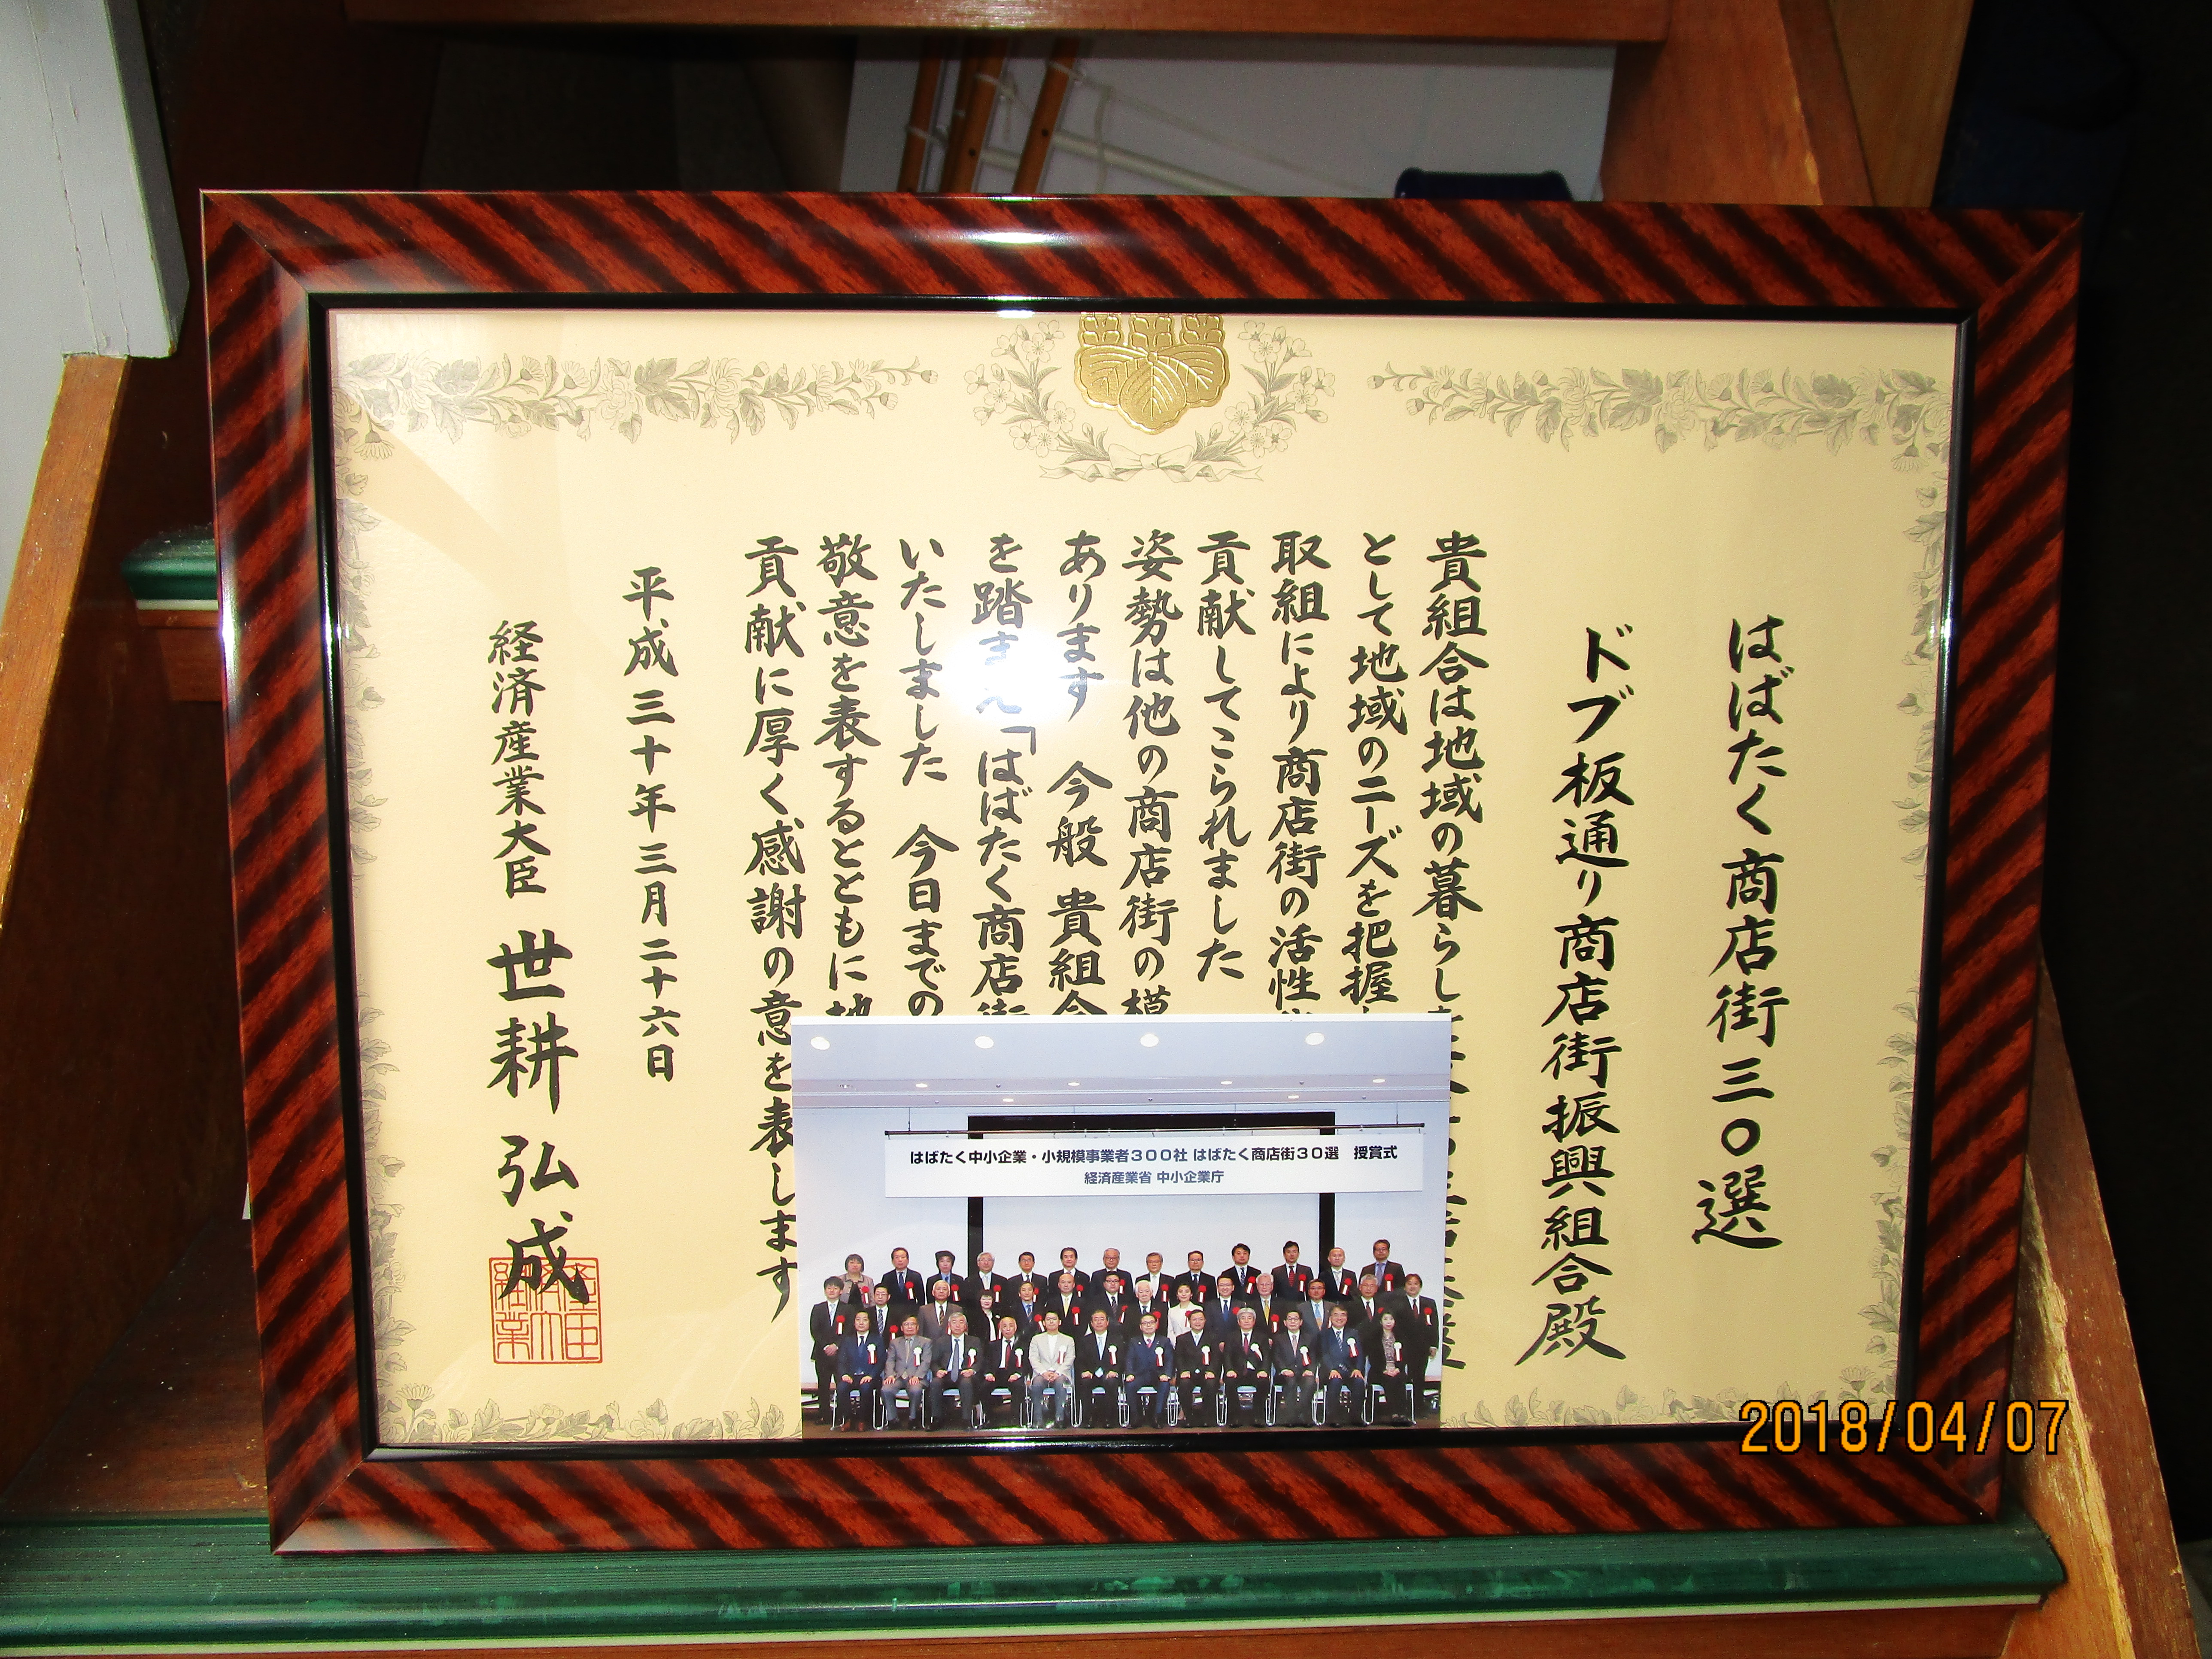 はばたく商店街三〇選
ドブ板通り商店街振興組合殿
貴組合は地域の暮らしを
として地域のニーズを把握
取組により商店街の活性
貢献してこられました
姿勢は他の商店街の模
あります 今般 貴組合
を踏まえ「はばたく商店街
いたしました 今日までの
敬意を表するとともに地
貢献に厚く感謝の意を表します
平成三十年三月二十六日
経済産業大臣 世耕弘成
はばたく中小企業・小規模事業者300社 はばたく商店街30選 授賞式
経済産業省 中小企業庁
2018/04/07